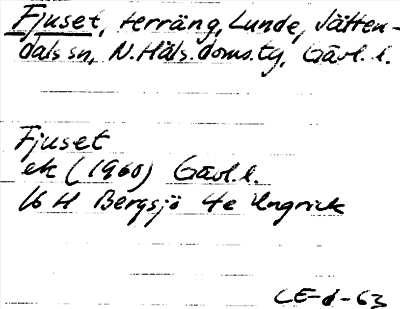 Fjuset, terräng, Lunde, Jätten-
dals sn, N. Häls. doms. ty, Gävl. l.
Fjuset
ek (1960) Gävl. l.
16 H Bergsjö 4e Ungrick
CE-d-63